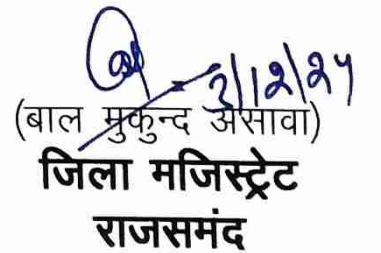 3/12/24
(बाल मुकुन्द असावा)
जिला मजिस्ट्रेट
राजसमंद